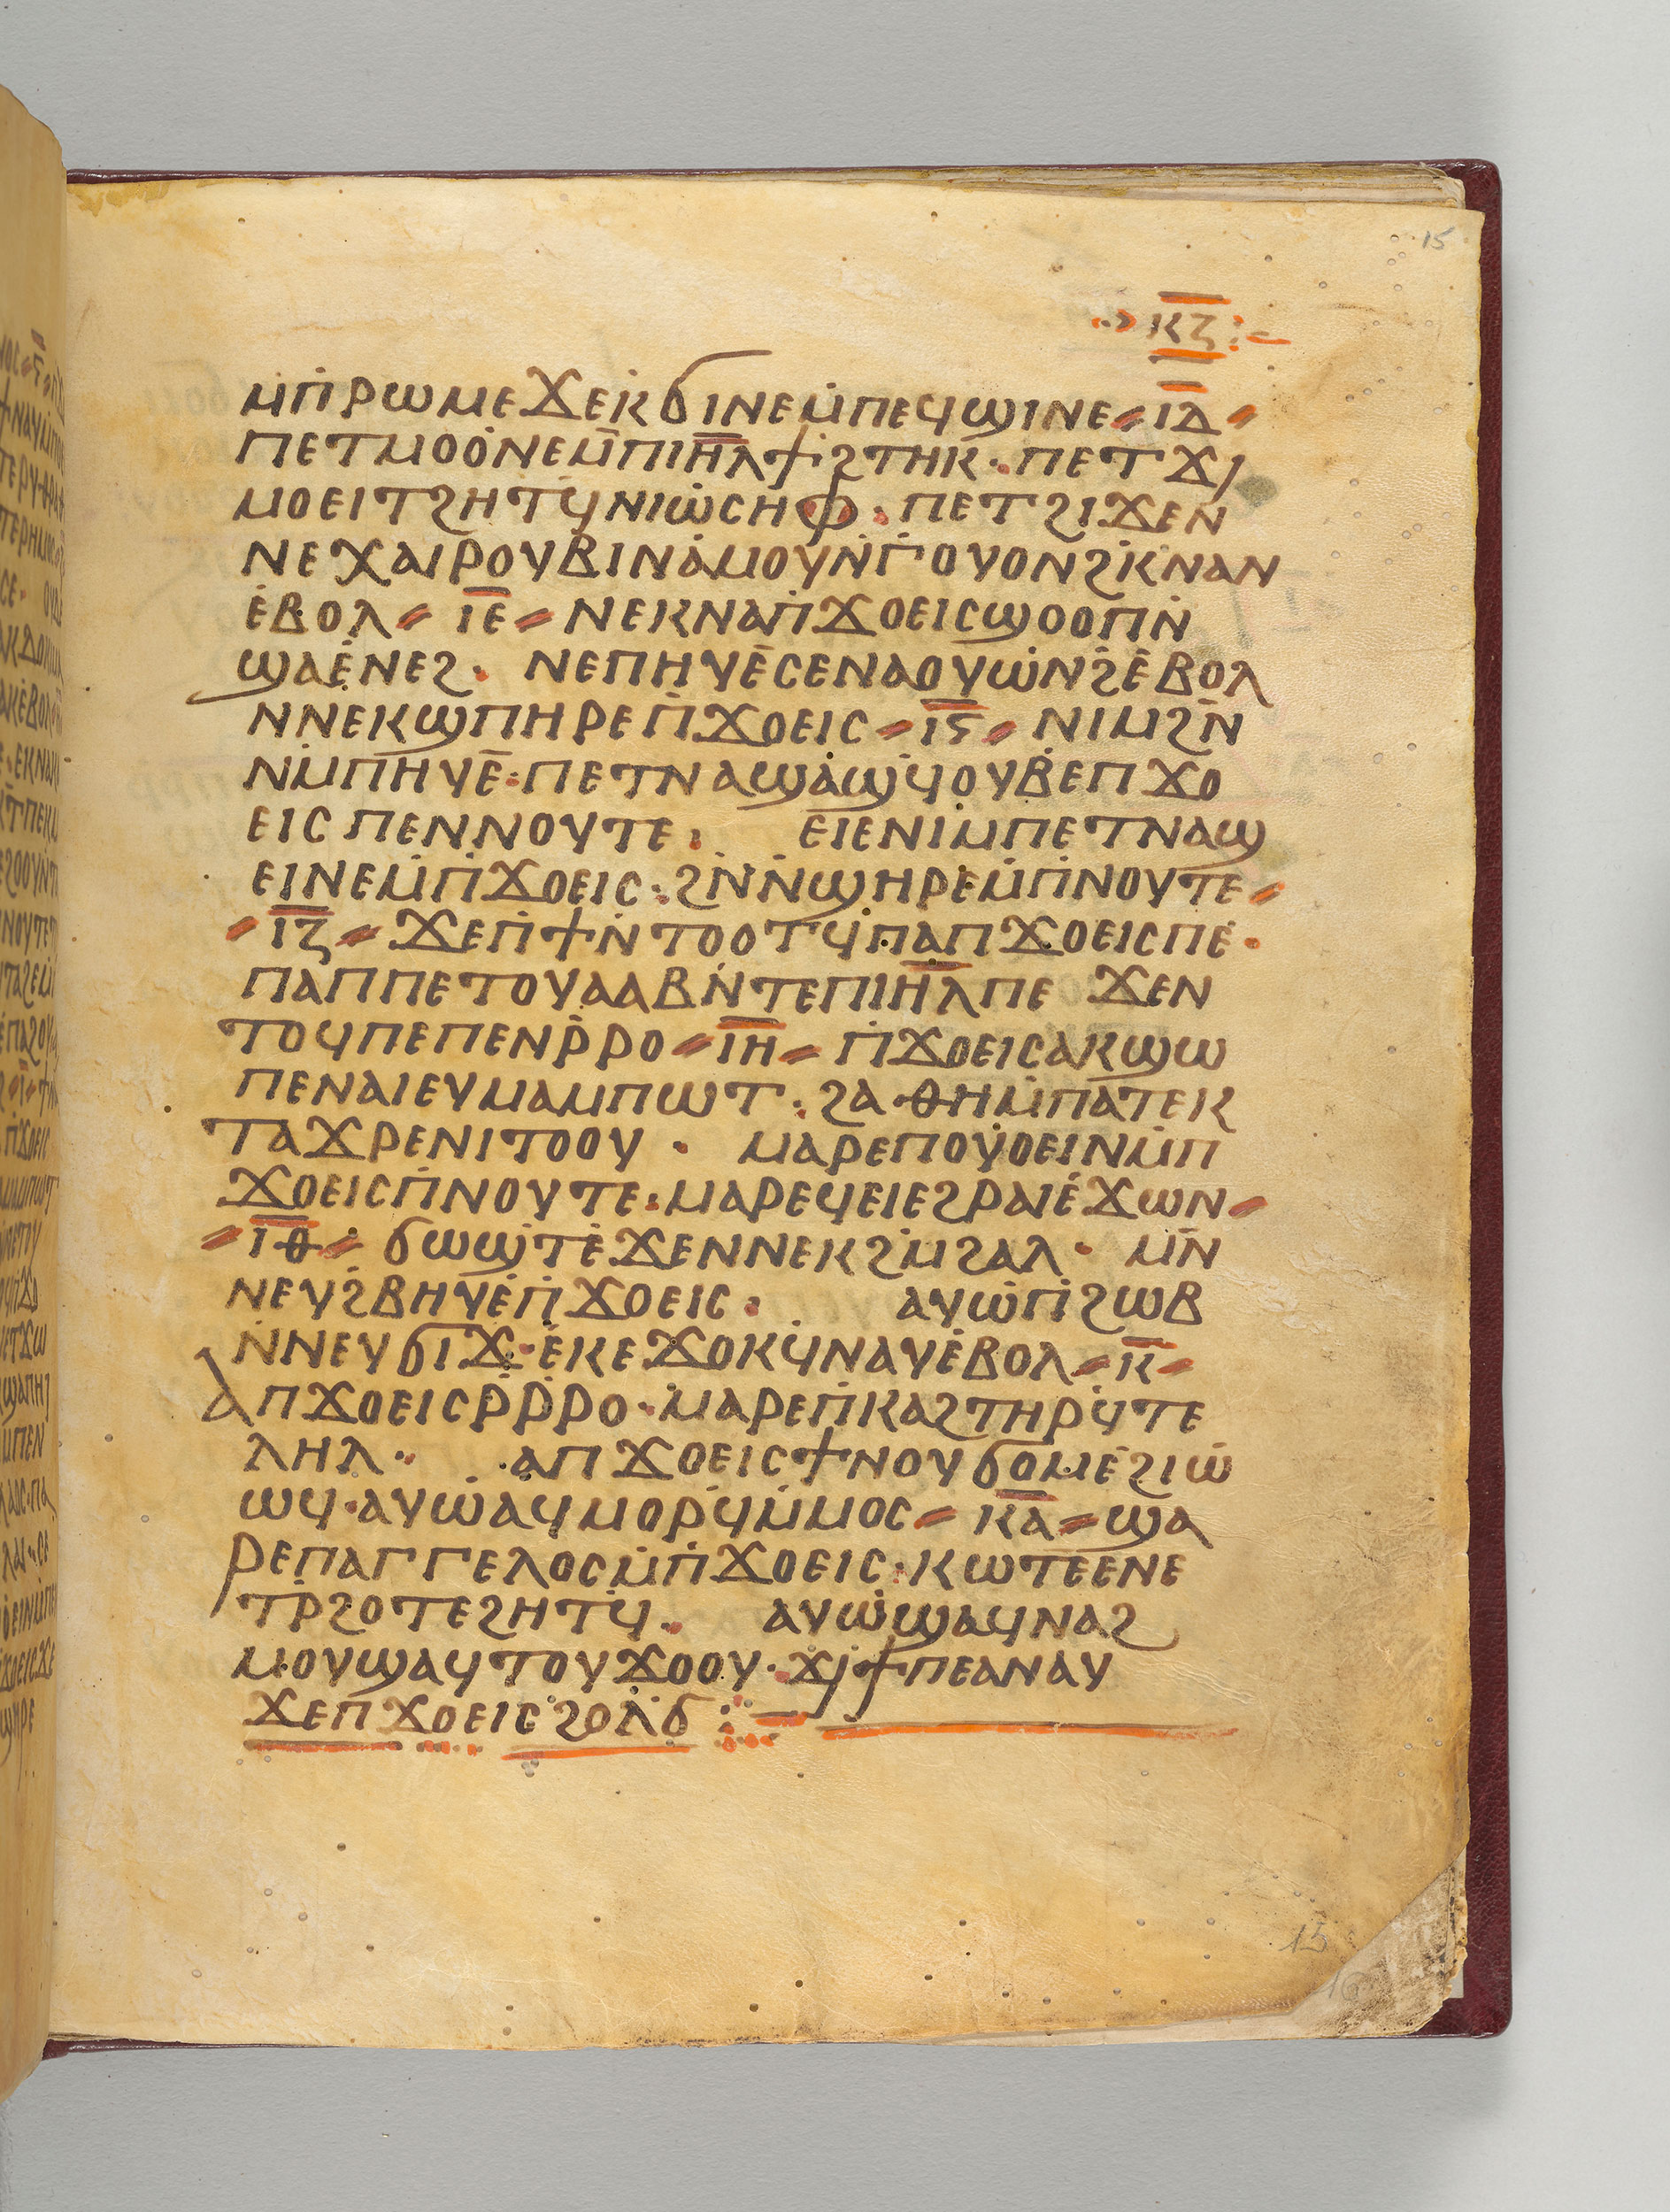 15
ⲕⲍ
ⲙⲡⲣⲱⲙⲉϫⲉⲕϭⲓⲛⲉⲙⲡⲉϥϣⲓⲛⲉ ⲓⲇ
ⲡⲉⲧⲙⲟⲟⲛⲉⲙⲡⲓⲏⲗϯϩⲧⲏⲕ· ⲡⲉⲧϫⲓ
ⲙⲟⲉⲓⲧϩⲏⲧϥⲛⲓⲱⲥⲏⲫ· ⲡⲉⲧϩⲓϫⲉⲛ
ⲛⲉⲭⲁⲓⲣⲟⲩⲃⲓⲛⲁⲙⲟⲩⲛⲅⲟⲩⲟⲛϩⲕⲛⲁⲛ
ⲉⲃⲟⲗ ⲓⲉ ⲛⲉⲕⲛⲁⲡϫⲟⲉⲓⲥϣⲟⲟⲡⲛ
ϣⲁⲉⲛⲉϩ· ⲛⲉⲡⲏⲩⲉⲥⲉⲛⲁⲟⲩⲱⲛϩⲉⲃⲟⲗ
ⲛⲛⲉⲕϣⲡⲏⲣⲉⲡϫⲟⲉⲓⲥ ⲓⲋ ⲛⲓⲙϩⲛ
ⲛⲙⲡⲏⲩⲉ·ⲡⲉⲧⲛⲁϣⲁϣϥⲟⲩⲃⲉⲡϫⲟ
ⲉⲓⲥⲡⲉⲛⲛⲟⲩⲧⲉ· ⲉⲓⲉⲛⲓⲙⲡⲉⲧⲛⲁϣ
ⲉⲓⲛⲉⲙⲡϫⲟⲉⲓⲥ·ϩⲛⲛϣⲏⲣⲉⲙⲡⲛⲟⲩⲧⲉ
ⲓⲍ ϫⲉⲡϯⲛⲧⲟⲟⲧϥⲡⲁⲡϫⲟⲉⲓⲥⲡⲉ·
ⲡⲁⲡⲡⲉⲧⲟⲩⲁⲁⲃⲛⲧⲉⲡⲓⲏⲗⲡⲉ ϫⲉⲛ
ⲧⲟϥⲡⲉⲡⲉⲛⲣⲣⲟ ⲓⲏ ⲡϫⲟⲉⲓⲥⲁⲕϣⲱ
ⲡⲉⲛⲁⲓⲉⲩⲙⲁⲙⲡⲱⲧ·ϩⲁⲑⲏⲙⲡⲁⲧⲉⲕ
ⲧⲁϫⲣⲉⲛⲓⲧⲟⲟⲩ· ⲙⲁⲣⲉⲡⲟⲩⲟⲉⲓⲛⲙⲡ
ϫⲟⲉⲓⲥⲡⲛⲟⲩⲧⲉ·ⲙⲁⲣⲉϥⲉⲓⲉϩⲣⲁⲓⲉϫⲱⲛ
ⲓⲑ ϭⲱϣⲧⲉϫⲉⲛⲛⲉⲕϩⲙϩⲁⲗ· ⲙⲛ
ⲛⲉⲩϩⲃⲏⲩⲉⲡϫⲟⲉⲓⲥ· ⲁⲩⲱⲡϩⲱⲃ
ⲛⲛⲉⲩϭⲓϫ·ⲉⲕⲉϫⲟⲕϥⲛⲁⲩⲉⲃⲟⲗ ⲕ
ⲁⲡϫⲟⲉⲓⲥⲣⲣⲣⲟ·ⲙⲁⲣⲉⲡⲕⲁϩⲧⲏⲣϥⲧⲉ
ⲗⲏⲗ· ⲁⲡϫⲟⲉⲓⲥϯⲛⲟⲩϭⲟⲙⲉϩⲓⲱ
ⲱϥ·ⲁⲩⲱⲁϥⲙⲟⲣϥⲙⲙⲟⲥ ⲕⲁ ϣⲁ
ⲣⲉⲡⲁⲅⲅⲉⲗⲟⲥⲙⲡϫⲟⲉⲓⲥ·ⲕⲱⲧⲉⲉⲛⲉ
ⲧⲣϩⲟⲧⲉϩⲏⲧϥ· ⲁⲩⲱϣⲁϥⲛⲁϩ
ⲙⲟⲩϣⲁϥⲧⲟⲩϫⲟⲟⲩ·ϫⲓϯⲡⲉⲁⲛⲁⲩ
ϫⲉⲡϫⲟⲉⲓⲥϩⲟⲗϭ
15